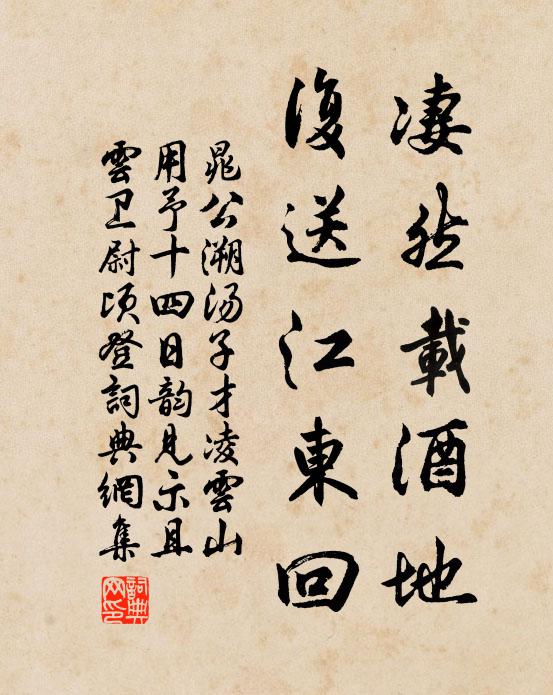 凄然載酒地
復送江東回
晁公溯汤子才凌雲山
用予十四日韵見示且
雲卫尉顷登詞典網集
詞典
网印